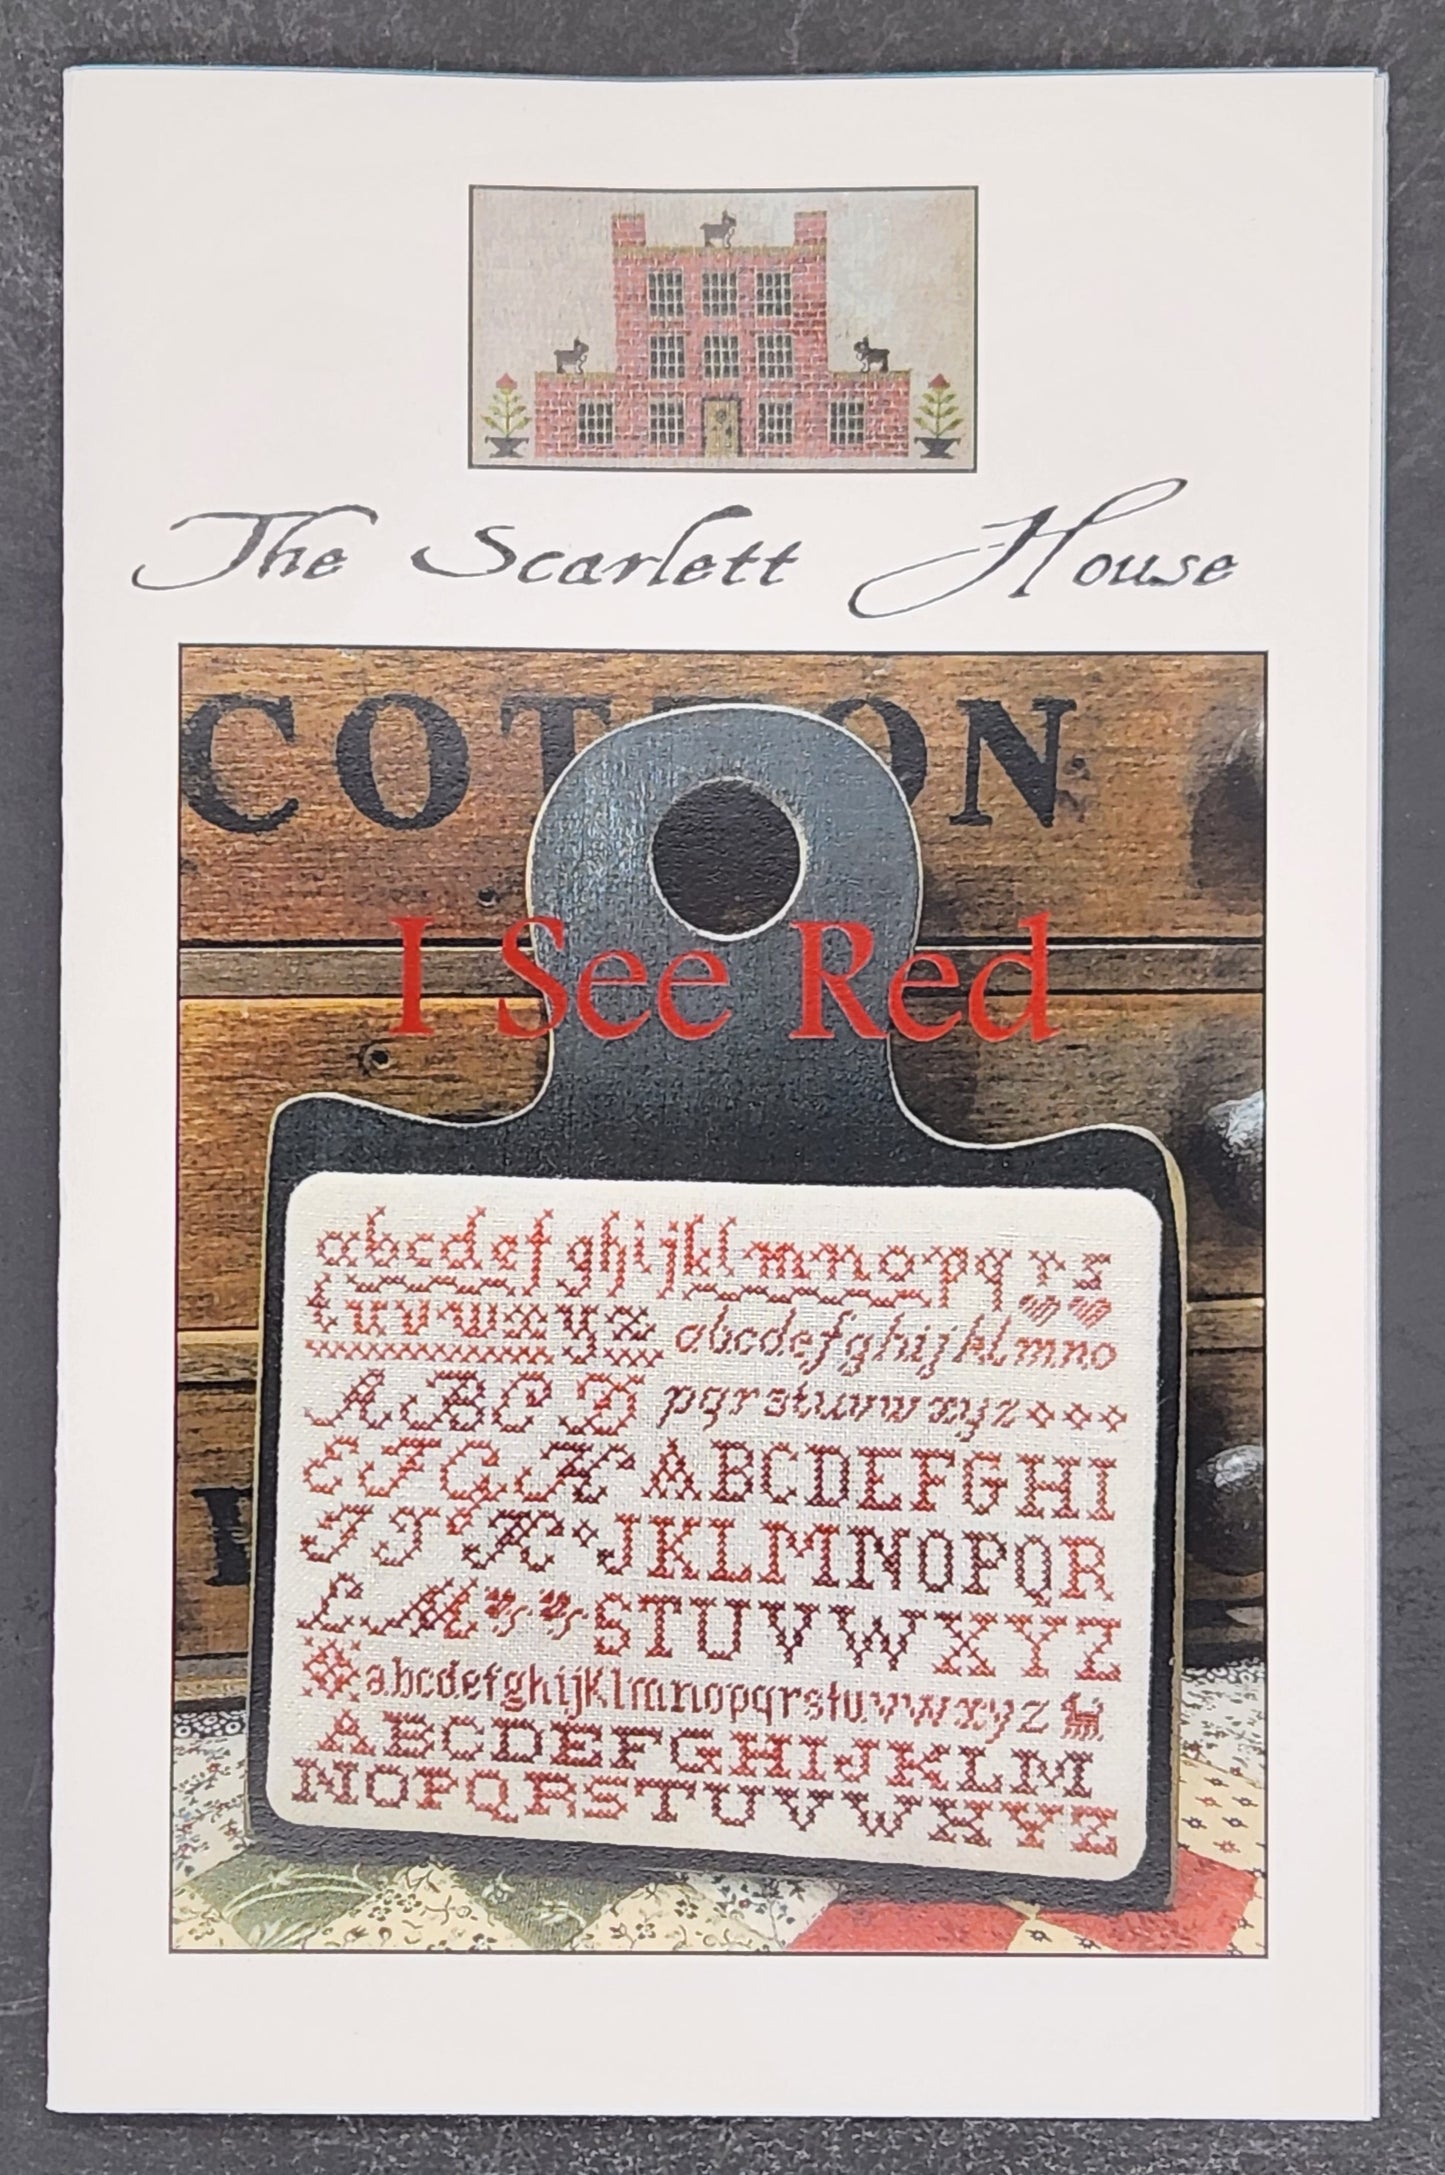 The Scarlett House
COTTON
I See Red
abcdefghijklmnopqrs
tuvwxyz
abcdefghijklmno
pqrstuvwxyz
ABCD
EFGH
ABCDEFGHI
IJK
JKLMNOPQR
LM
STUVWXYZ
abcdefghijklmnopqrstuvwxyz
ABCDEFGHIJKLM
NOPQRSTUVWXYZ